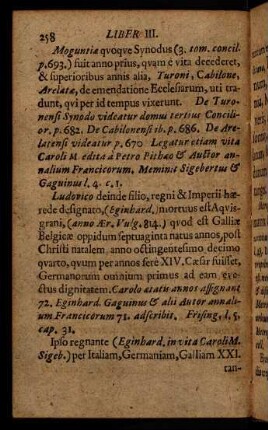 258 LIBER III.
Moguntiæ quoque Synodus (3. tom. concil.
p.693.) fuit anno prius, quam é vita decederet,
& superioribus annis alia, Turoni, Cabilone,
Arelatæ, de emendatione Ecclesiarum, uti tra-
dunt, qvi per id tempus vixerunt. De Turo-
nensi Synodo videatur domu tertius Concili-
or. p. 682. De Cabilonensi ib. p. 686. De Are-
latensi videatur p. 670. Legatur etiam vita
Caroli M. edita á Petro Pithæo & Auctor an-
nalium Francicorum. Meminit Sigebertus &
Gaguinus l. 4. c. 1.
Ludovico deinde filio, regni & Imperii hæ-
rede designato, (Eginhard.) mortuus est Aqvis-
grani, (anno Ær. Vulg. 814.) qvod est Galliæ
Belgicæ oppidum septuaginta natus annos, post
Christi natalem, anno octingentesimo decimo
qvarto, qvum per annos ferè XIV. Cæsar fuisset,
Germanorum omnium primus ad eam eve-
ctus dignitatem. Carolo ætatis annos assignant
72. Eginhard. Gaguinus & alii Autor annali-
um Francicorum 71. adscribit. Frising. l. 5.
cap. 31.
Ipso regnante (Eginhard. in vita Caroli M.
Sigeb.) per Italiam, Germaniam, Galliam XXI.
tan-